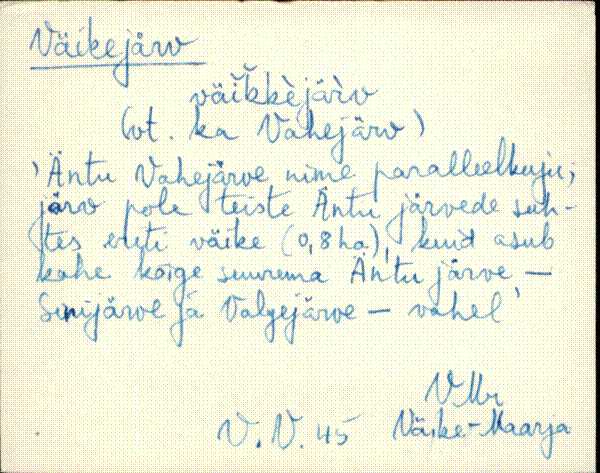 Väikejärv
väikkèjär̀v
(vt. ka Vahejärv)
'Äntu Vahejärve nime paralleelkuju;
järv pole teiste Äntu järvede suh-
tes eriti väike (0,8 ha), kuid asub
kahe kõige suurema Äntu järve —
Sinijärve ja Valgejärve — vahel'
VMr
V. V. 45 Väike-Maarja